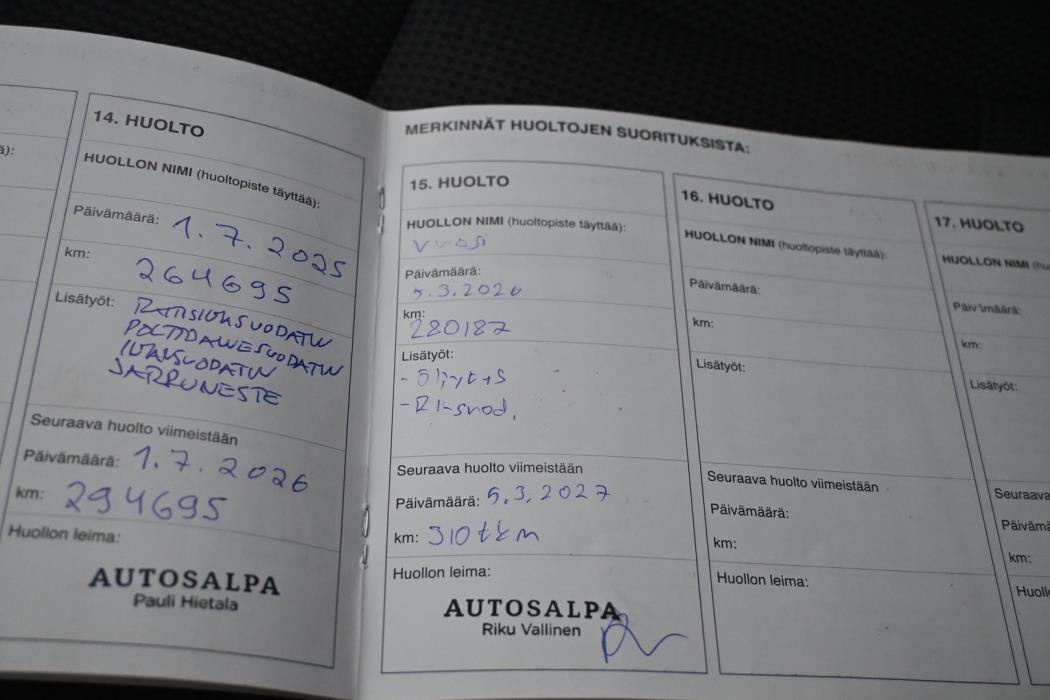 ä):
14. HUOLTO
HUOLLON NIMI (huoltopiste täyttää):
Päivämäärä: 1.7.2025
km: 264695
Lisätyöt: RAITISILMASUODATIN
POLTTOAINESUODATIN
ILMANSUODATIN
JARRUNESTE
Seuraava huolto viimeistään
Päivämäärä: 1.7.2026
km: 294695
Huollon leima:
AUTOSALPA
Pauli Hietala
MERKINNÄT HUOLTOJEN SUORITUKSISTA:
15. HUOLTO
HUOLLON NIMI (huoltopiste täyttää):
vuosi
Päivämäärä:
5.3.2026
km:
280187
Lisätyöt:
- Öljyt+S
- RI-suod.
Seuraava huolto viimeistään
Päivämäärä: 5.3.2027
km: 310 tkm
Huollon leima:
AUTOSALPA
Riku Vallinen
16. HUOLTO
HUOLLON NIMI (huoltopiste täyttää):
Päivämäärä:
km:
Lisätyöt:
Seuraava huolto viimeistään
Päivämäärä:
km:
Huollon leima:
17. HUOLTO
HUOLLON NIMI (hu
Päivämäärä:
km:
Lisätyöt:
Seuraava
Päivämä
km:
Huoll